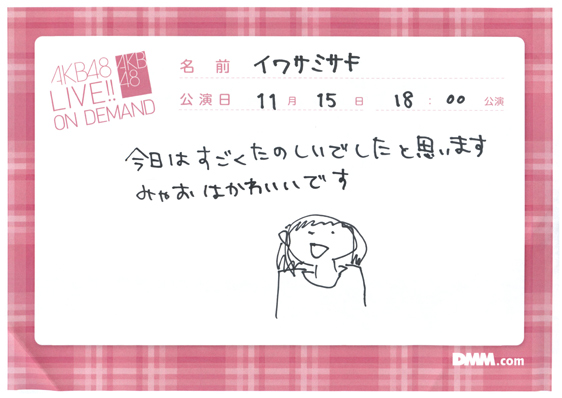 AKB48
LIVE!!
ON DEMAND
AKB
48
名 前 イワサミサキ
公演日 11月 15日 18:00 公演
今日はすごくたのしいでしたと思います
みゃおはかわいいです
DMM.com